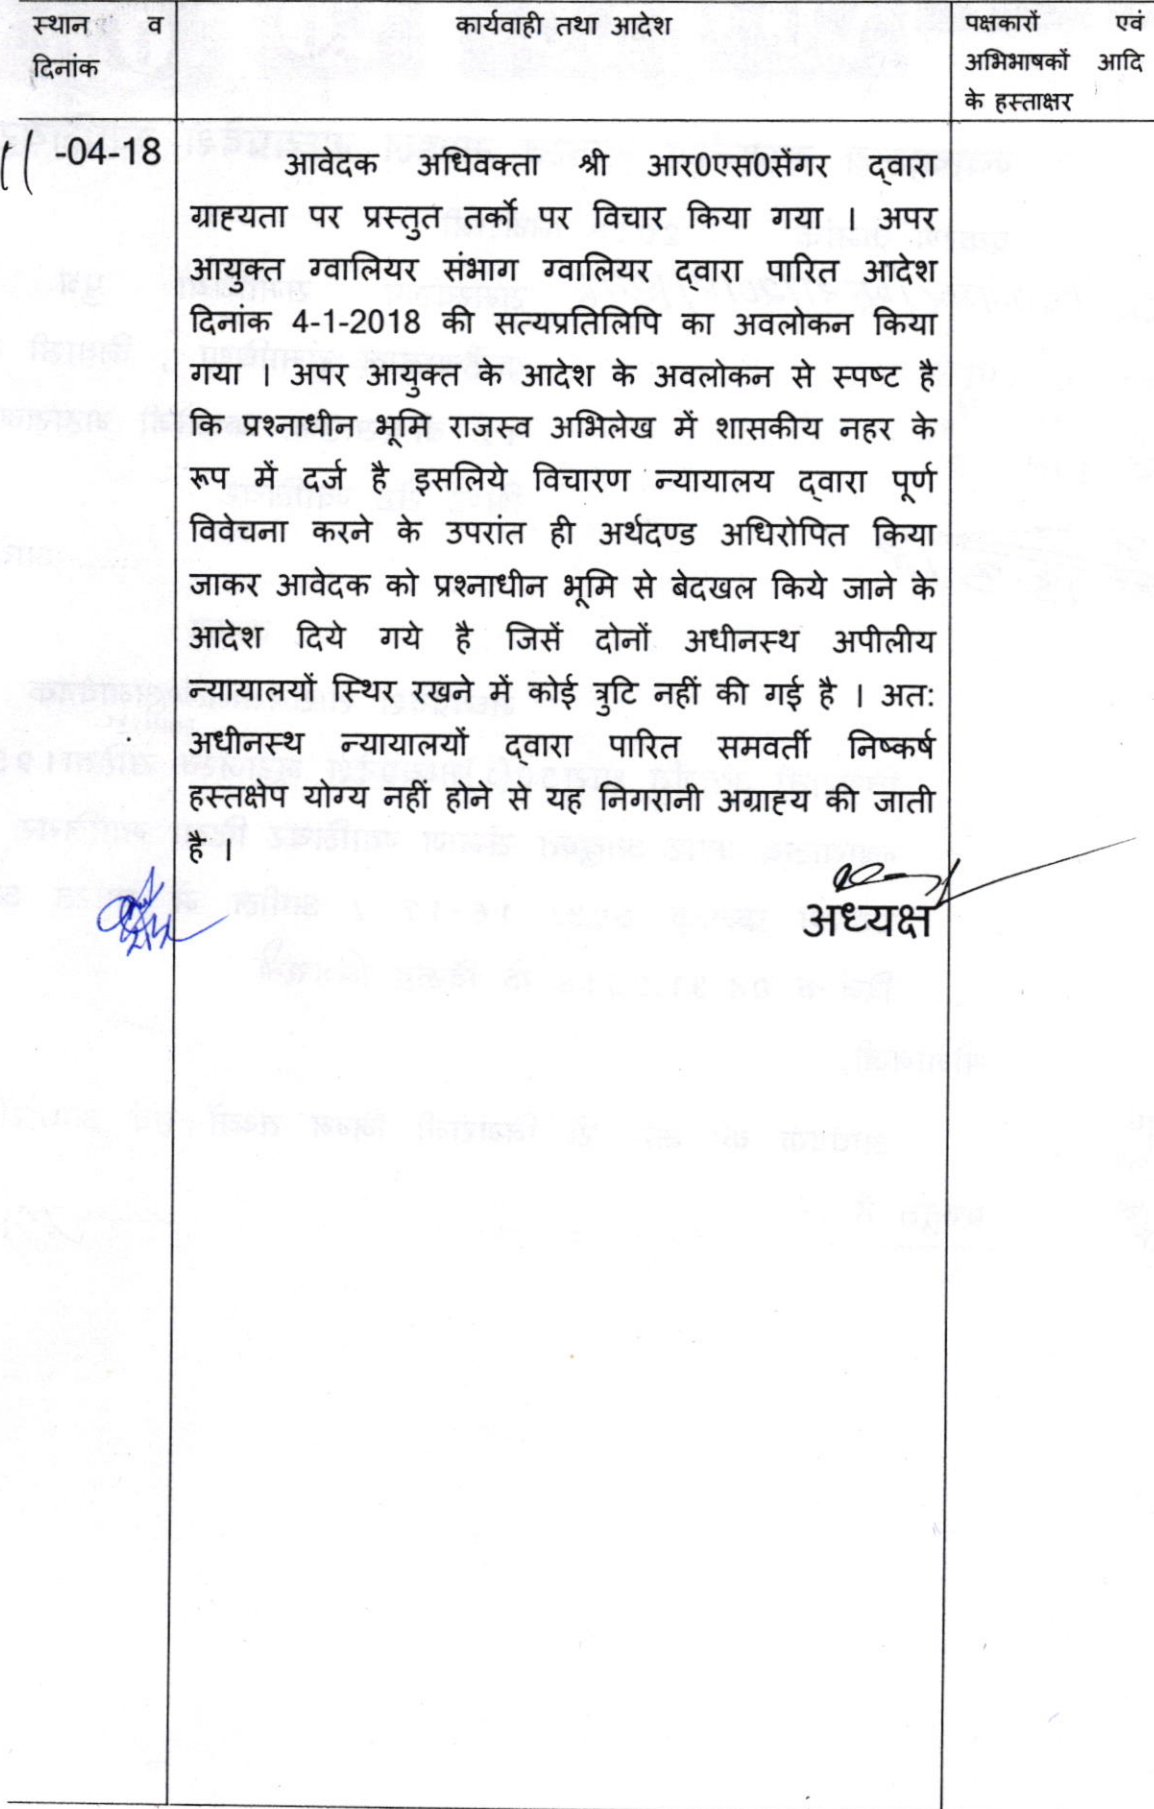 स्थान व
दिनांक
कार्यवाही तथा आदेश
पक्षकारों एवं
अभिभाषकों आदि
के हस्ताक्षर
11 -04-18
आवेदक अधिवक्ता श्री आर0एस0सेंगर द्वारा
ग्राह्यता पर प्रस्तुत तर्को पर विचार किया गया । अपर
आयुक्त ग्वालियर संभाग ग्वालियर द्वारा पारित आदेश
दिनांक 4-1-2018 की सत्यप्रतिलिपि का अवलोकन किया
गया । अपर आयुक्त के आदेश के अवलोकन से स्पष्ट है
कि प्रश्नाधीन भूमि राजस्व अभिलेख में शासकीय नहर के
रूप में दर्ज है इसलिये विचारण न्यायालय द्वारा पूर्ण
विवेचना करने के उपरांत ही अर्थदण्ड अधिरोपित किया
जाकर आवेदक को प्रश्नाधीन भूमि से बेदखल किये जाने के
आदेश दिये गये है जिसें दोनों अधीनस्थ अपीलीय
न्यायालयों स्थिर रखने में कोई त्रुटि नहीं की गई है । अतः
अधीनस्थ न्यायालयों द्वारा पारित समवर्ती निष्कर्ष
हस्तक्षेप योग्य नहीं होने से यह निगरानी अग्राह्य की जाती
है ।
अध्यक्ष